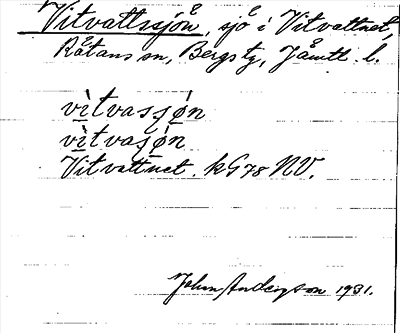 Vitvattssjön, sjö i Vitvattnet,
Råtans sn, Bergs tg, Jämtl. l.
vìtvassjön
vìtvasjön
Vitvattnet. kG78 NV.
John Andersson 1931.